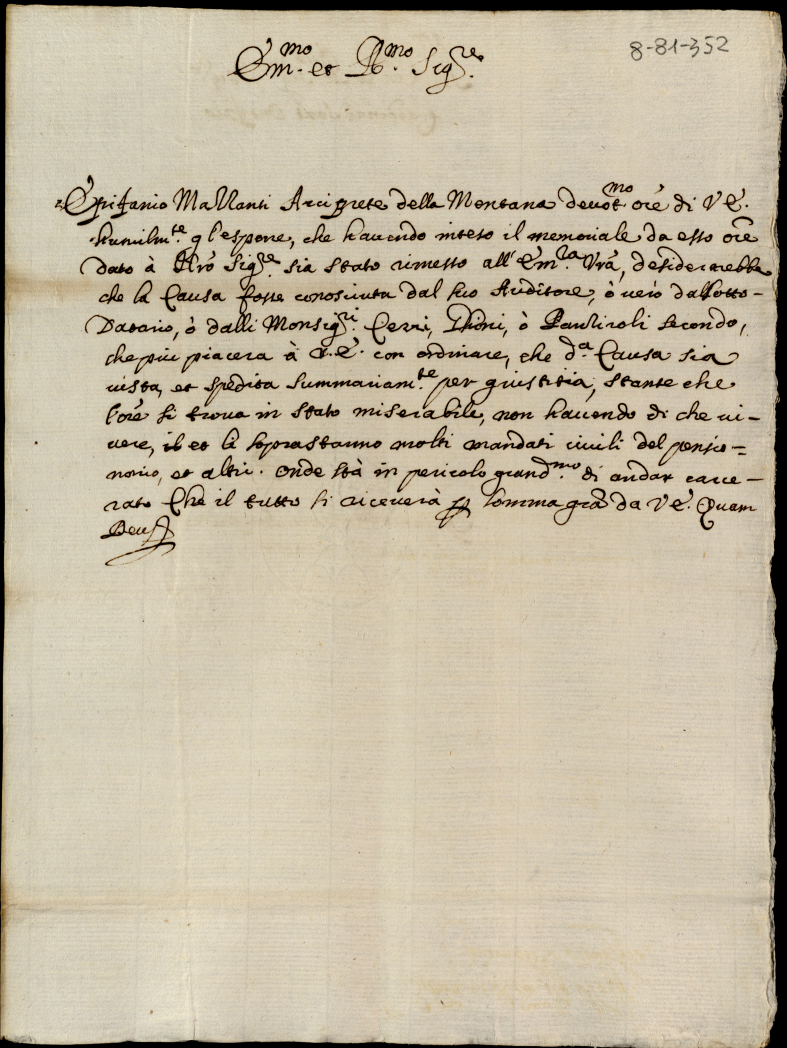 8-81-352
Em.mo et R.mo Sig.re
Epifanio Mallanti Arciprete della Mentana devot.mo ore di V.E.
humilm.te gl'espone, che havendo inteso il memoriale da esso ore
dato à Nro Sig.re sia stato rimesso all'Em.za Vra, desiderarebbe
che la Causa fosse conosciuta dal suo Auditore, ò vero dal sotto-
Datario, ò dalli Monsig.ri Cerri, ò Panziroli secondo,
che più piacerà à V.E. con ordinare, che d.a Causa sia
vista, et spedita summariam.te per giustitia, stante che
l'ore si trova in stato miserabile, non havendo di che vi-
vere, et li soprastanno molti mandati civili del pensio-
nario, et altri. Onde stà in pericolo grand.mo di andar carce-
rato Che il tutto si riceverà p somma gra da V.E. Quam
Deus